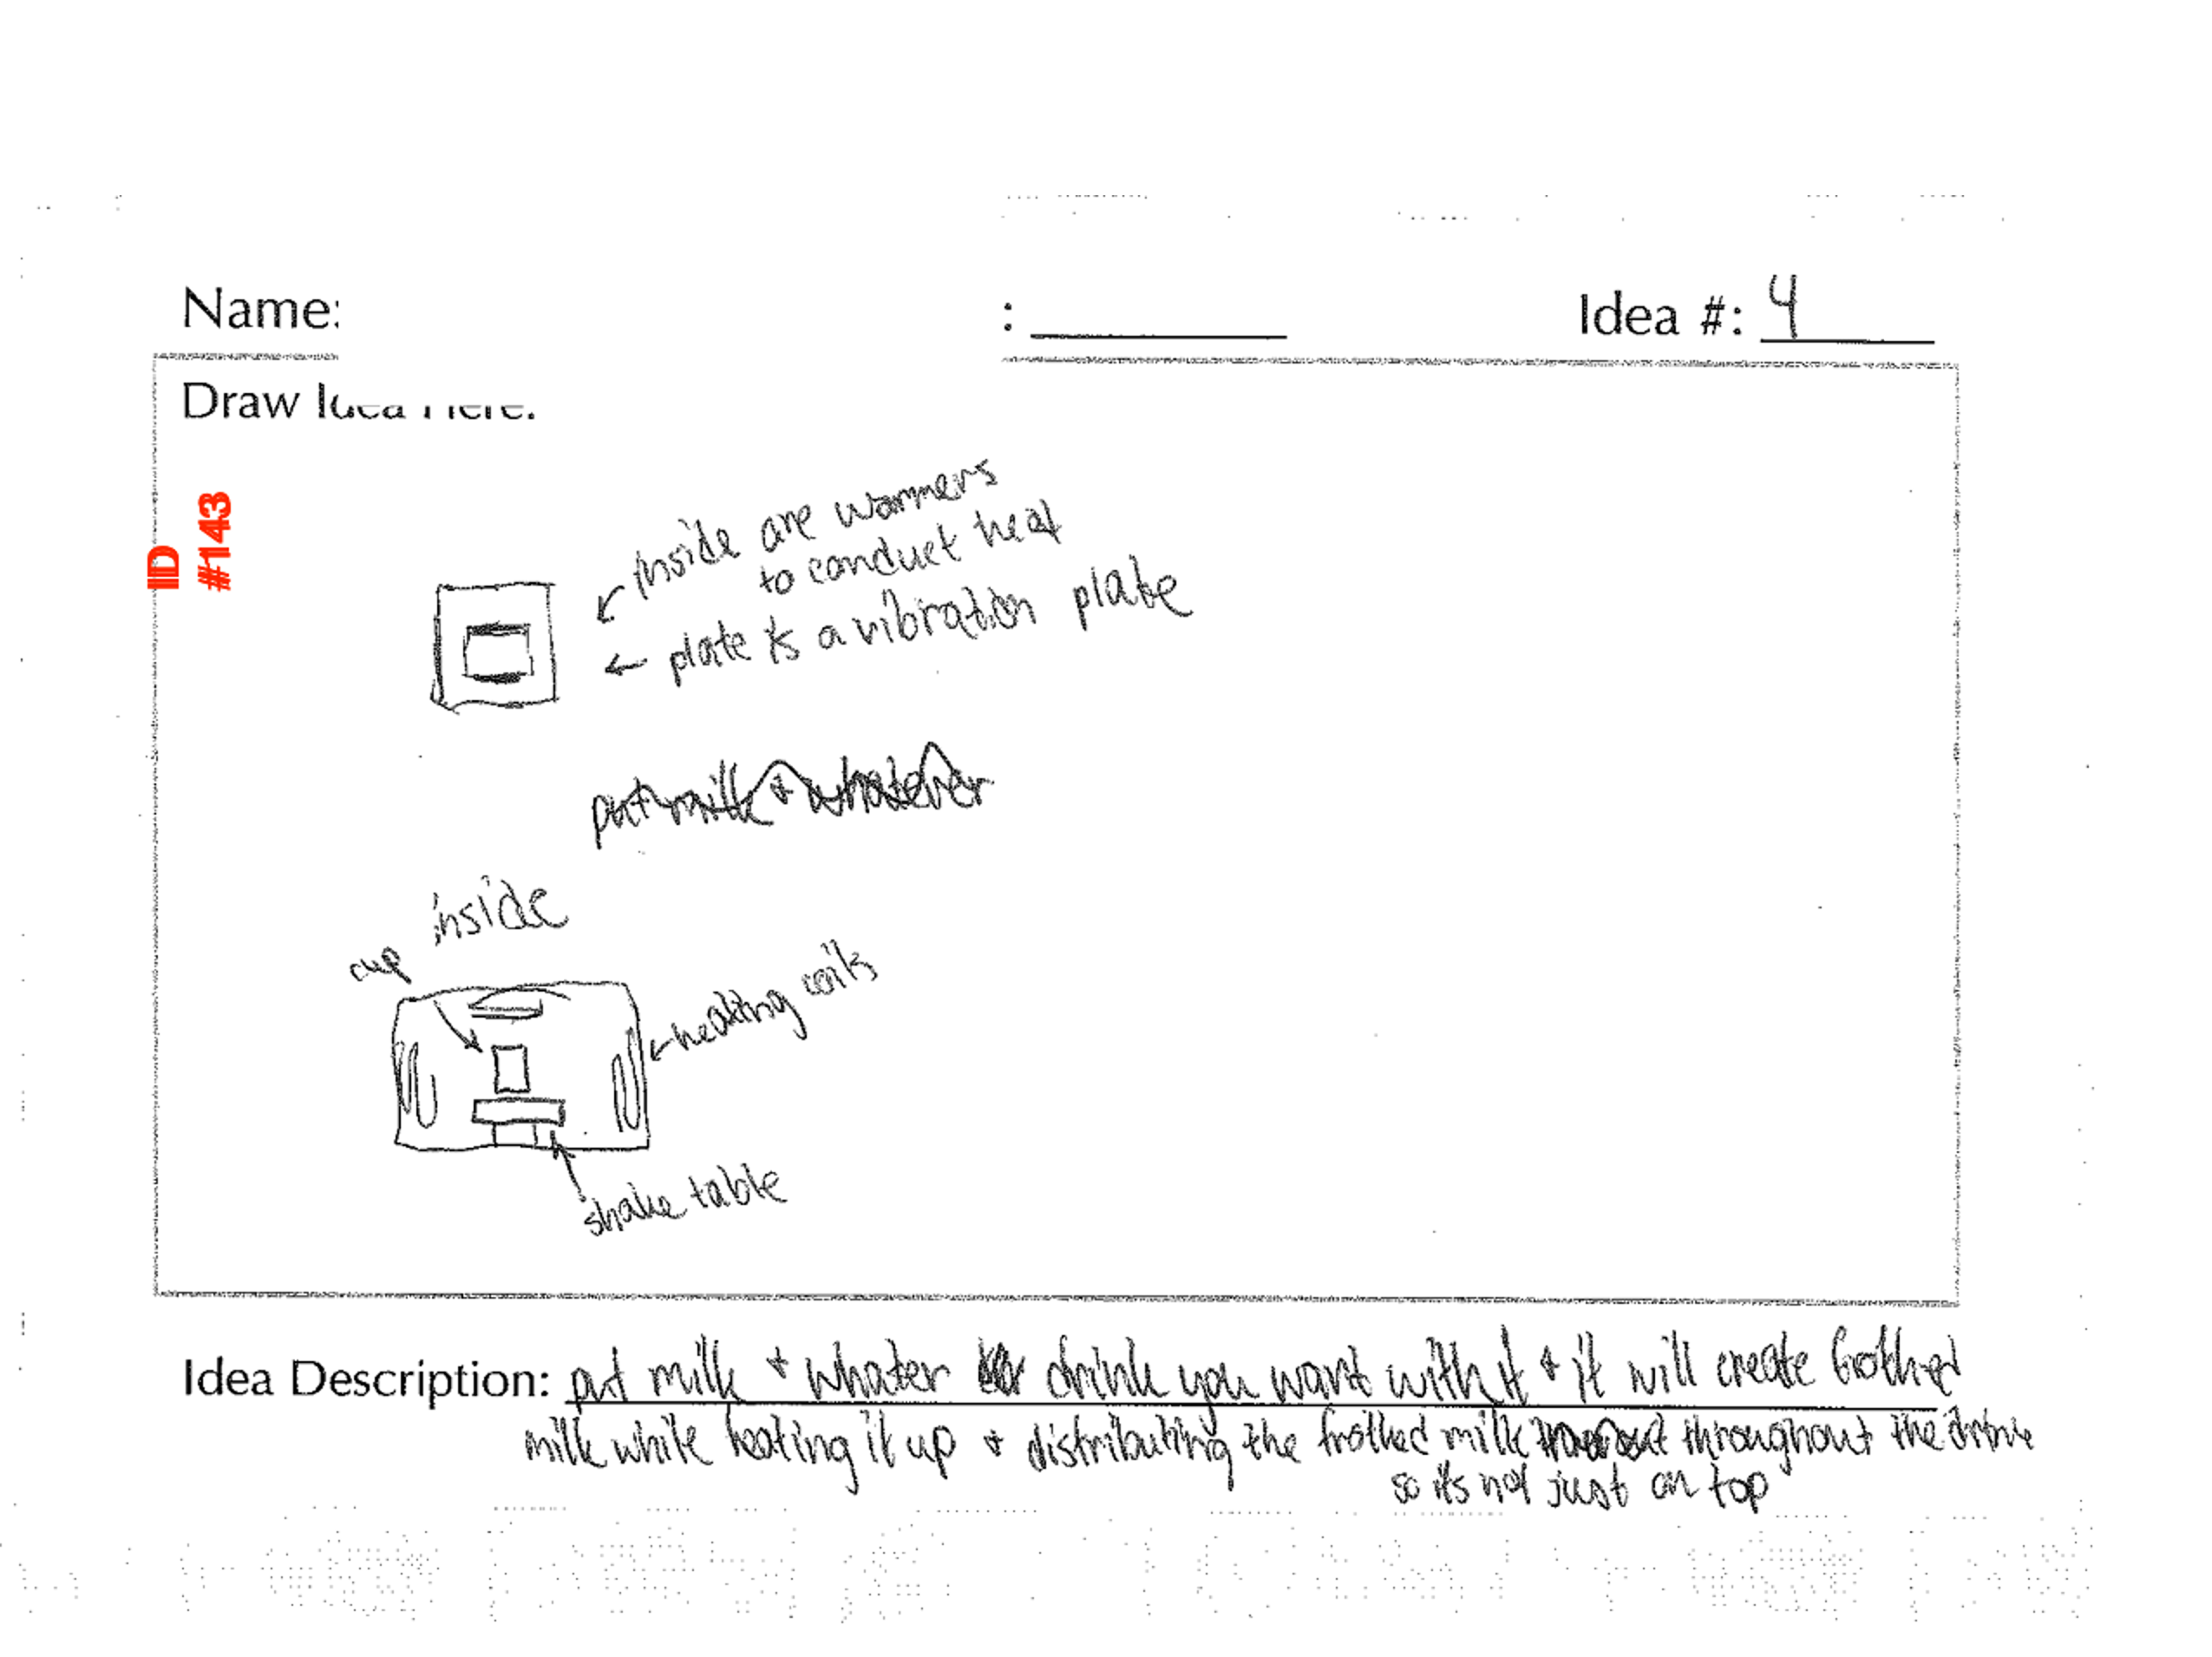 Name:
: Idea #: 4
Draw Idea Here:
ID
#143
inside are warmers
to conduct heat
plate is a vibration plate
put milk + whatever
inside
cup
heating coils
shake table
Idea Description: put milk + whater drink you want with it + it will create frothed
milk while heating it up + distributing the frothed milk throughout the drink
so its not just on top